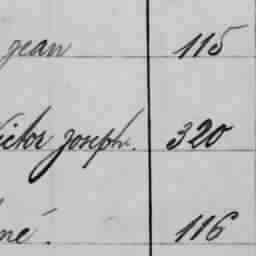 jean 115
ictor joseph. 320
né. 116